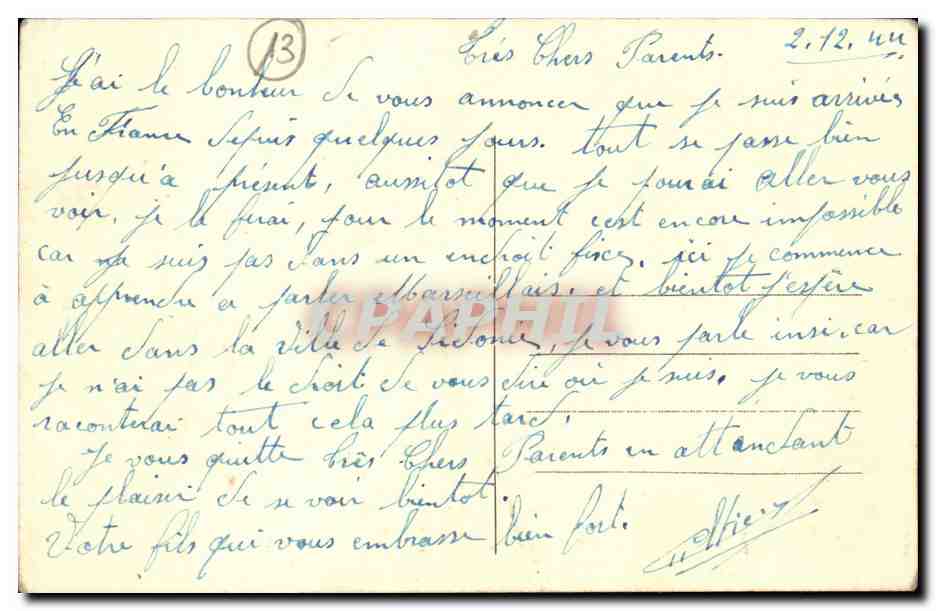 13
2.12.44
Très Chers Parents.
J'ai le bonheur de vous annoncer que je suis arrivé
En France depuis quelques jours. tout se passe bien
jusqu'à présent, aussitot que je pourai aller vous
voir, je le ferai, pour le moment c'est encore impossible
car je suis pas dans un endroit fixe, ici je commence
à apprendre a parler Marseillais. et bientot j'espère
aller dans la ville de, je vous parle insi, car
je n'ai pas le droit de vous dire où je suis. je vous
raconterai tout cela plus tard.
Je vous quitte très Chers Parents en attendant
le plaisir de se voir bientot.
Votre fils qui vous embrasse bien fort.
CPAPHIL